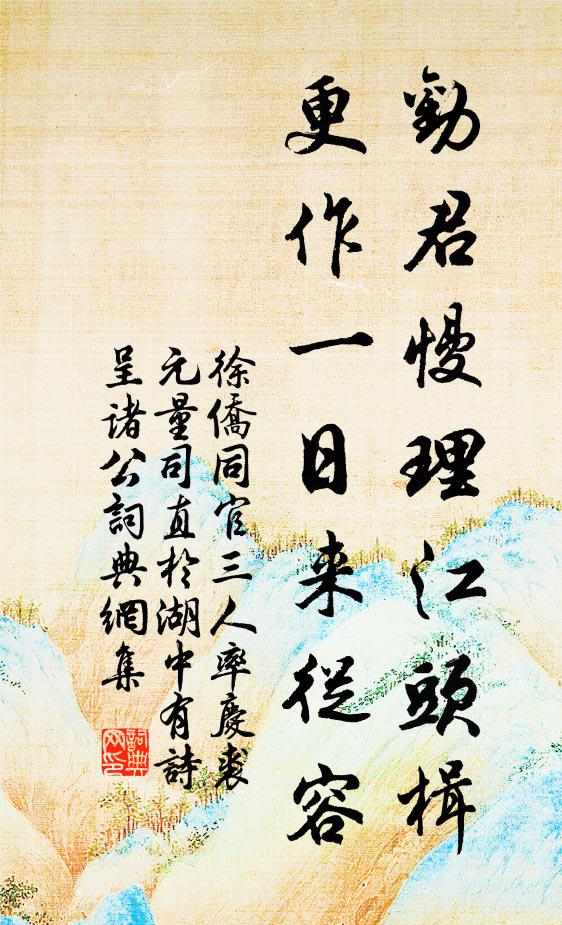 勸君慢理江頭楫
更作一日来從容
徐僑同官三人率慶裘
元量司直於湖中有詩
呈诸公詞典網集
詞典
网印